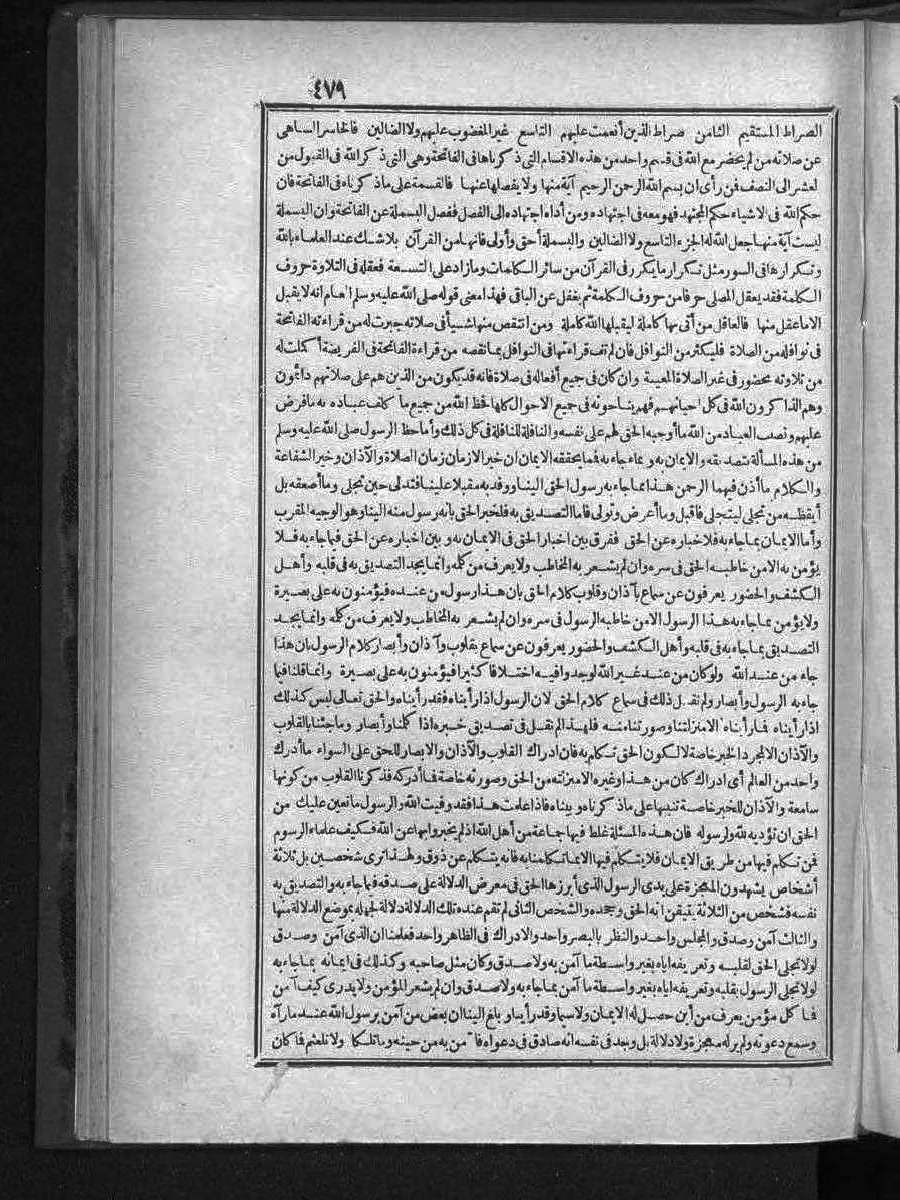 ٤٧٩
الصراط المستقيم الثامن صراط الذين أنعمت عليهم التاسع غير المغضوب عليهم ولا الضالين فالخاسر الساهى
عن صلاته من لم يحضر مع الله فى قسم واحد من هذه الاقسام التى ذكرناها فى الفاتحة وهى التى ذكر الله فى القبول من
العشر الى النصف فمن رأى ان بسم الله الرحمن الرحيم آية منها ولا يفصلها عنها فالقسمة على ماذكرناه فى الفاتحة فان
حكم الله فى الاشياء حكم المجتهد فهو معه فى اجتهاده ومن أداه اجتهاده الى الفصل ففصل البسملة عن الفاتحة وان البسملة
ليست آية منها جعل الله له الجزء التاسع ولا الضالين والبسملة أحق وأولى فانها من القرآن بلا شك عند العلماء بالله
وتكرارها فى السور مثل تكرار ما يكرر فى القرآن من سائر الكلمات وما زاد على التسعة فعقله فى التلاوة حروف
الكلمة فقد يعقل المصلى حرفا من حروف الكلمة ثم يغفل عن الباقى فهذا معنى قوله صلى الله عليه وسلم العام انه لا يقبل
الا ما عقل منها فالعاقل من أتى بها كاملة ليقبلها الله كاملة ومن انتقص منها شيأ فى صلاته جبرت له من قراءته الفاتحة
فى نوافله من الصلاة فليكثر من النوافل فان لم تف قراءتها فى النوافل بما نقصه من قراءة الفاتحة فى الفريضة أكملت له
من تلاوته بحضور فى غير الصلاة المعينة وان كان فى جميع أفعاله فى صلاة فانه قد يكون من الذين هم على صلاتهم دائمون
وهم الذاكرون الله فى كل احيانهم فهم يناجونه فى جميع الاحوال كلها فحظ الله من جميع ما كلف عباده به ما فرض
عليهم ونصب العباد من الله ما أوجبه الحق لهم على نفسه والنافلة للنافلة فى كل ذلك وأما حظ الرسول صلى الله عليه وسلم
من هذه المسألة بتصديقه والايمان به وبما جاء به فمما يحققه الايمان ان خير الازمان زمان الصلاة والآذان وخير الشفاعة
والكلام ما أذن فيهما الرحمن هذا مما جاء به رسول الحق الينا ووفد به مقبلا علينا فتدلى حين تجلى وما أصعقه بل
أيقظه من تجلى ليتجلى فاقبل وما أعرض وتولى فاما التصديق به فلخبر الحق بانه رسول منه الينا وهو الوجيه المقرب
وأما الايمان بما جاء به فلاخباره عن الحق ففرق بين اخبار الحق فى الايمان به وبين اخباره عن الحق فيما جاء به فلا
يؤمن به الا من خاطبه الحق فى سره وان لم يشعر به المخاطب ولا يعرف من كلمه وانما يجد التصديق به فى قلبه وأهل
الكشف والحضور يعرفون عن سماع بآذان وقلوب كلام الحق بان هذا رسول من عنده فيؤمنون به على بصيرة
ولا يؤمن بما جاء به هذا الرسول الا من خاطبه الرسول فى سره وان لم يشعر به المخاطب ولا يعرف من كلمه وانما يجد
التصديق بما جاء به فى قلبه وأهل الكشف والحضور يعرفون عن سماع بقلوب وآذان وأبصار كلام الرسول بان هذا
جاء من عند الله ولو كان من عند غير الله لوجدوا فيه اختلافا كثيرا فيؤمنون به على بصيرة وانما قلنا فيما
جاء به الرسول وأبصار ولم نقل ذلك فى سماع كلام الحق لان الرسول اذا رأيناه فقد رأيناه والحق تعالى ليس كذلك
اذا رأيناه فما رأيناه الا منزلتنا وصورتنا منه فلهذا لم نقل فى تصديق خبره اذا كلمنا وأبصار وما جئنا بالقلوب
والآذان الا لمجرد الخبر خاصة لا لكون الحق تكلم به فان ادراك القلوب والآذان والابصار للحق على السواء ما أدرك
واحد من العالم أى ادراك كان من هذا وغيره الا منزلته من الحق وصورته خاصة فما أدركه فذكرنا القلوب من كونها
سامعة والآذان للخبر خاصة تنبيها على ماذكرناه وبيناه فاذا علمت هذا فقد وفيت الله والرسول ما تعين عليك من
الحق ان تؤديه لله ولرسوله فان هذه المسئلة غلط فيها جماعة من أهل الله اذ لم يخبروا بها عن الله فكيف علماء الرسوم
فمن تكلم فيها من طريق الايمان فلا يتكلم فيها الا بما تكلمنا به فانه يتكلم عن ذوق ولهذا ترى شخصين بل ثلاثة
أشخاص يشهدون المعجزة على يدى الرسول الذى أبرزها الحق فى معرض الدلالة على صدقه فيما جاء به والتصديق به
نفسه فشخص من الثلاثة يتيقن انه الحق وجحده والشخص الثانى لم تقم عنده تلك الدلالة دلالة لجهله بموضع الدلالة منها
والثالث آمن وصدق والمجلس واحد والنظر بالبصر واحد والادراك فى الظاهر واحد فعلمنا ان الذى آمن وصدق
لولا تجلى الحق لقلبه وتعريفه اياه بغير واسطة ما آمن به ولا صدق وكان مثل صاحبه وكذلك فى ايمانه بما جاء به
لولا تجلى الرسول بقلبه وتعريفه اياه بغير واسطة ما آمن بما جاء به ولا صدق وان لم يشعر المؤمن ولا يدرى كيف آمن
فما كل مؤمن يعرف من أين حصل له الايمان ولا سيما وقد رأينا وبلغ الينا ان بعض من آمن برسول الله عند ما رآه
وسمع دعوته ولم ير له معجزة ولا دلالة بل وجد فى نفسه انه صادق فى دعواه فآمن به من حينه وما تلكأ ولا تلعثم فما كان